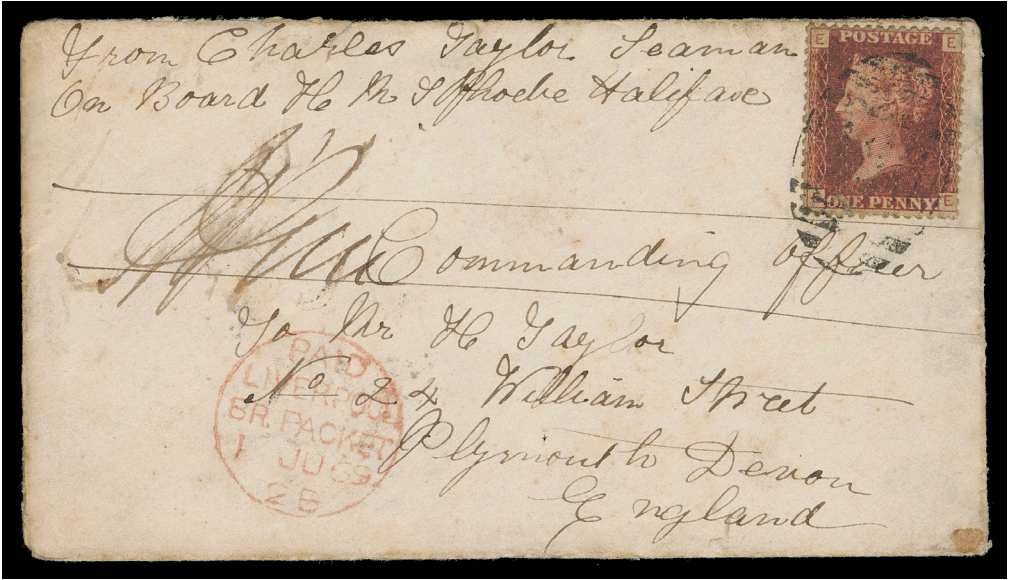 From Charles Taylor Seaman
On Board H M S Phoebe Halifax
E POSTAGE E
ONE PENNY E
Commanding Officer
To Mr H Taylor
No 24 William Street
Plymouth Devon
England
PAID
LIVERPOOL
BR. PACKET
1 JU 69
2 B